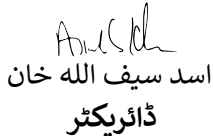 اسد سیف الله خان
ڈائریکٹر